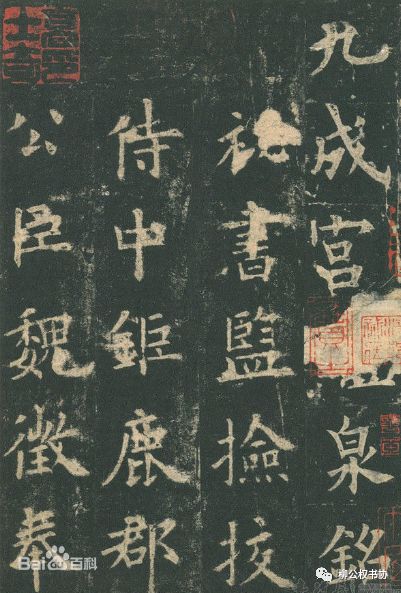 九成宮泉銘
祕書監撿挍
侍中鉅鹿郡
公臣魏徵奉
Bai百科
柳公权书协